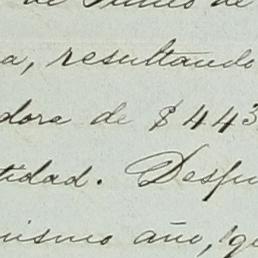 de Junio de
a, resultando
dora de $443
tidad. Despu
mismo año, q